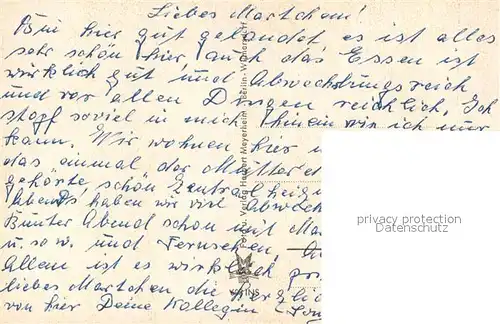 Liebes Martchen!
Bin hier gut gelandet es ist alles
sehr schön hier auch das Essen ist
wirklich gut und Abwechslungsreich
und vor allen Dingen reichlich. Ich
stopf soviel in mich hinein wie ich nur
kann. Wir wohnen hier
das einmal der Mütter
gehörte, schön Zentralheizu
Abends haben wir viel Abwech
Bunter Abend schon mit
u.s.w. und Fernsehen.
Allem ist es wirklich
liebes Martchen die herzlic
von hier Deine Kollegin
Foto u. Verlag Herbert Meyerheim, Berlin-Wilmersdorf
privacy protection